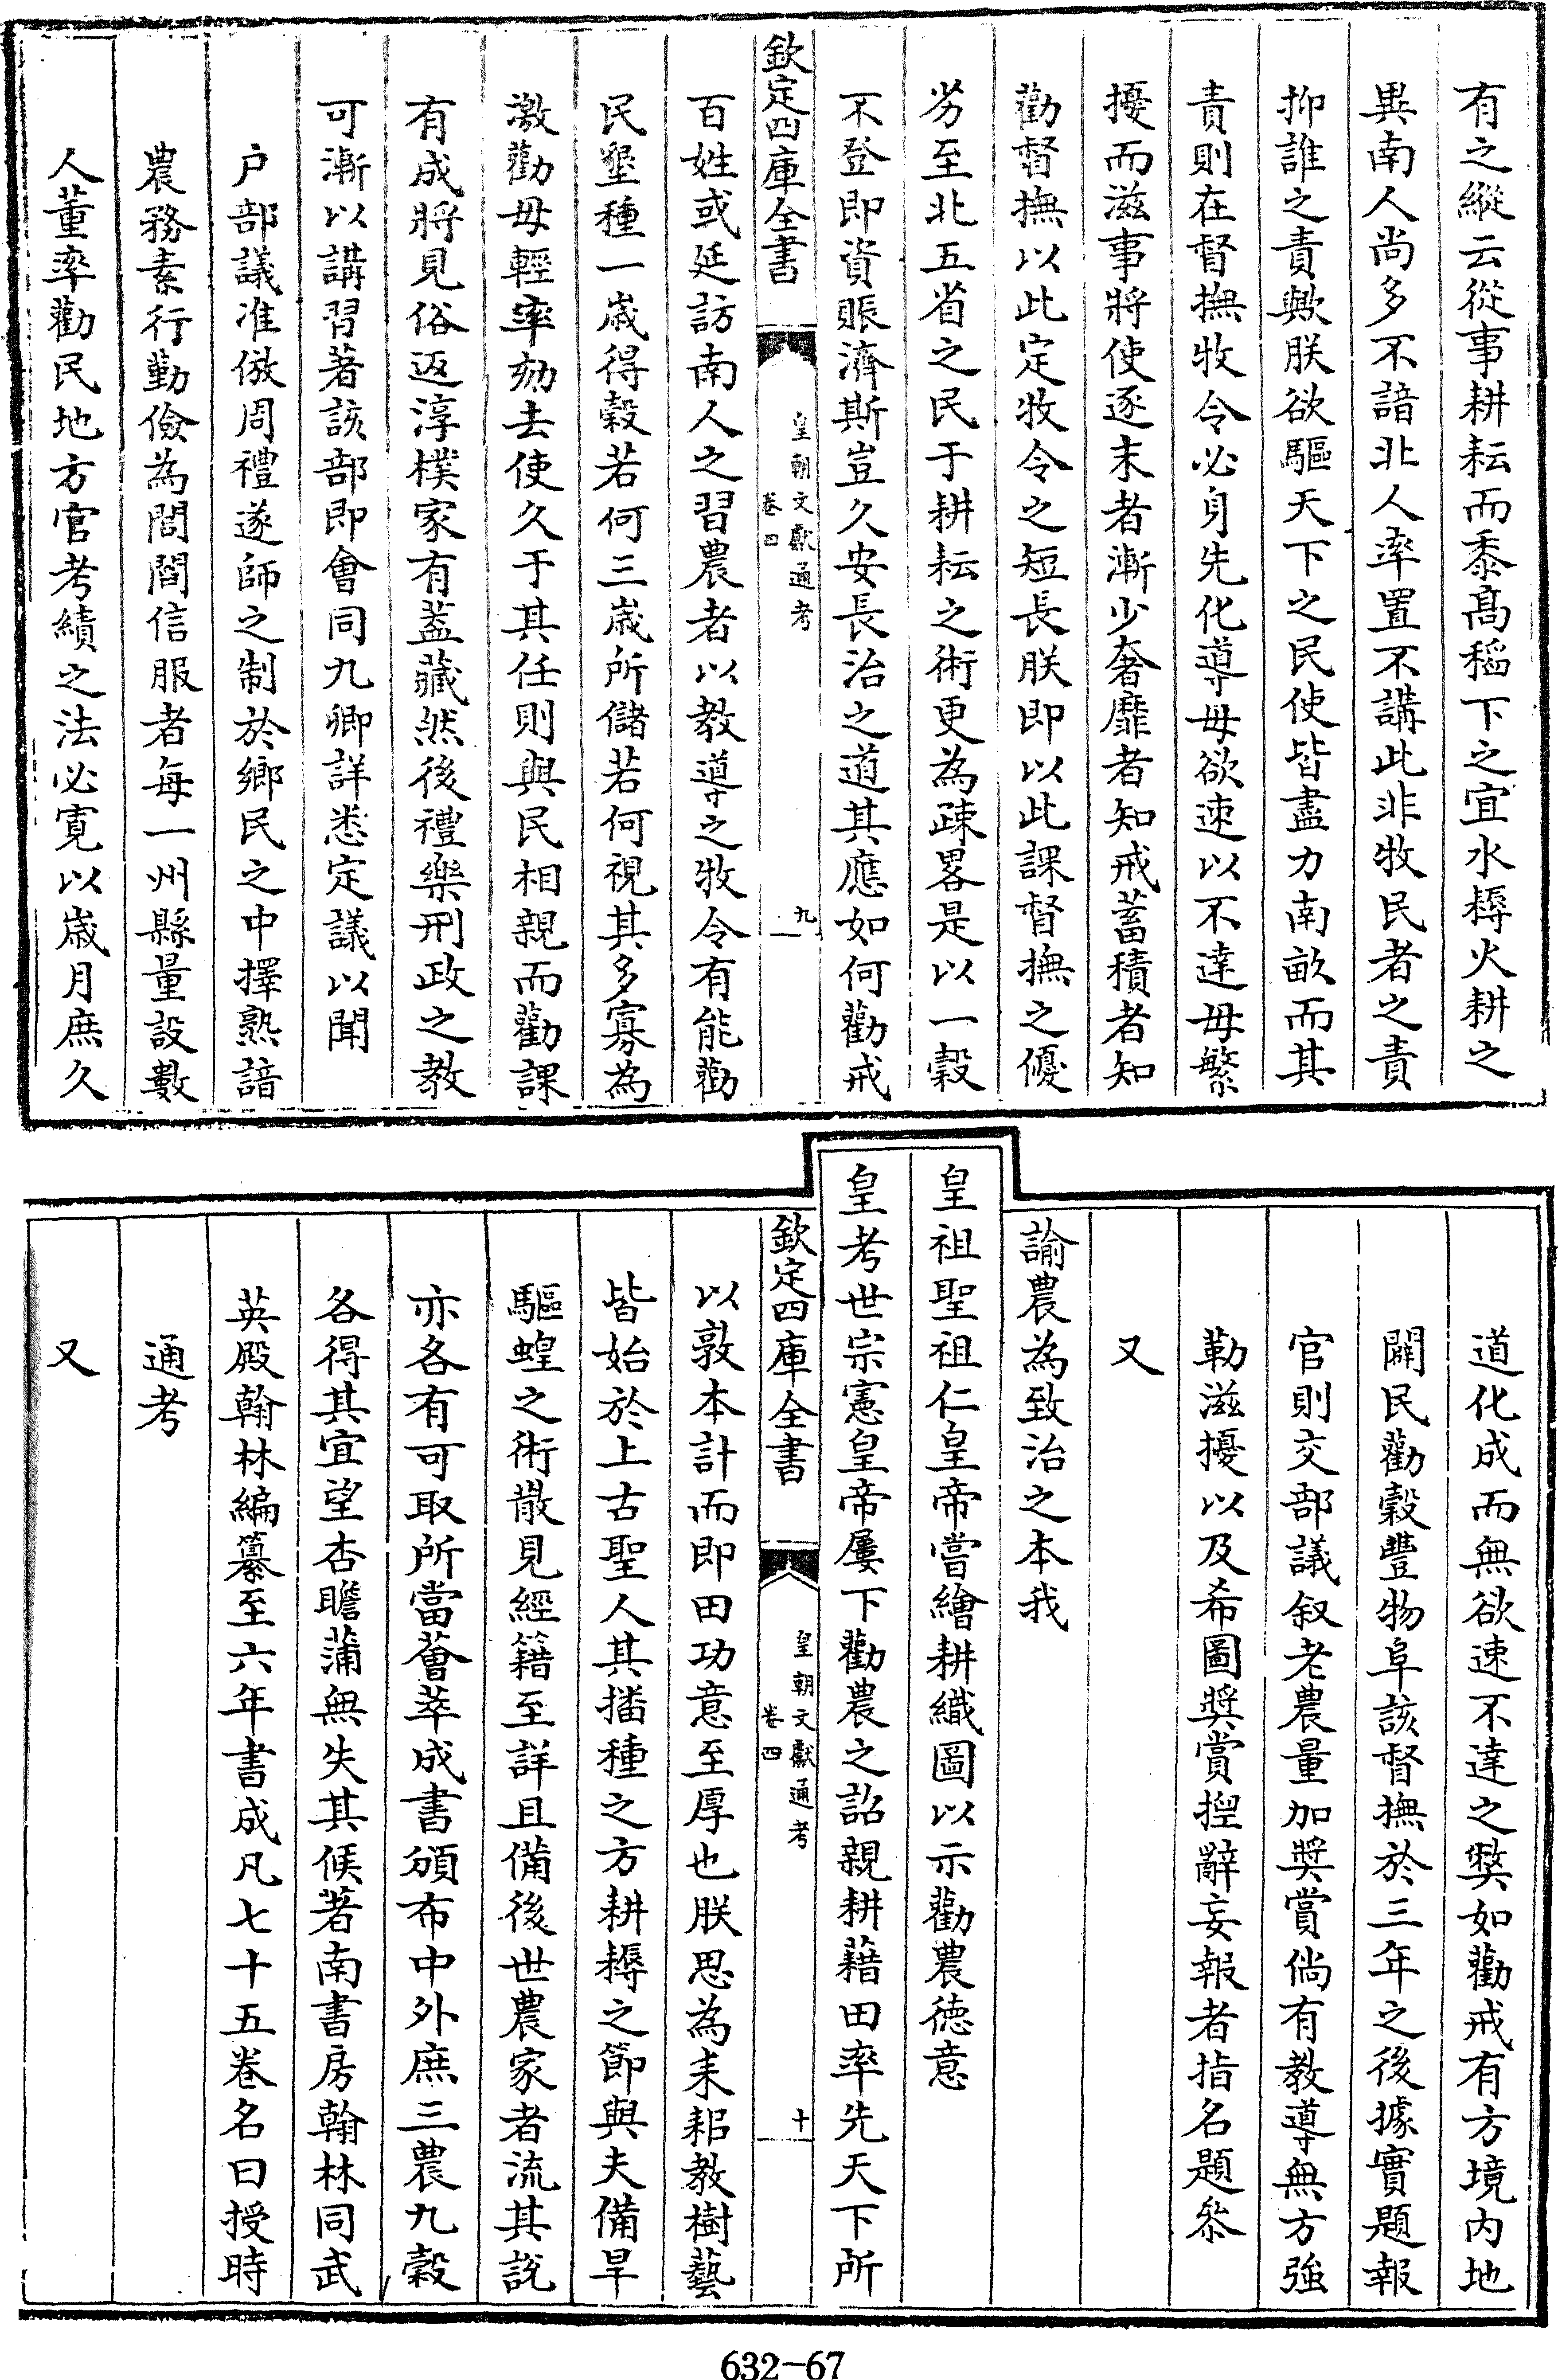 有之縱云從事耕耘而黍髙稻下之宜水耨火耕之
異南人尚多不諳北人率置不講此非牧民者之責
抑誰之責歟朕欲驅天下之民使皆盡力南畝而其
責則在督撫牧令必身先化導毋欲速以不達毋繁
擾而滋事將使逐末者漸少奢靡者知戒蓄積者知
勸督撫以此定牧令之短長朕即以此課督撫之優
劣至北五省之民于耕耘之術更為疎畧是以一穀
不登即資賑濟斯豈久安長治之道其應如何勸戒
欽定四庫全書
皇朝文獻通考
卷四
九
百姓或延訪南人之習農者以教導之牧令有能勸
民墾種一嵗得穀若何三嵗所儲若何視其多寡為
激勸毋輕率劾去使久于其任則與民相親而勸課
有成將見俗返淳樸家有蓋藏然後禮樂刑政之教
可漸以講習著該部即會同九卿詳悉定議以聞
户部議准倣周禮遂師之制於鄉民之中擇熟諳
農務素行勤儉為閭閻信服者每一州縣量設數
人董率勸民地方官考績之法必寛以嵗月庶久
道化成而無欲速不達之弊如勸戒有方境内地
闢民勸穀豐物阜該督撫於三年之後據實題報
官則交部議叙老農量加奬賞倘有教導無方強
勒滋擾以及希圖奬賞揑辭妄報者指名題叅
又
諭農為致治之本我
皇祖聖祖仁皇帝嘗繪耕織圖以示勸農德意
皇考世宗憲皇帝屢下勸農之詔親耕藉田率先天下所
欽定四庫全書
皇朝文獻通考
卷四
十
以敦本計而即田功意至厚也朕思為耒耜教樹藝
皆始於上古聖人其播種之方耕耨之節與夫備旱
驅蝗之術散見經籍至詳且備後世農家者流其説
亦各有可取所當薈萃成書頒布中外庶三農九穀
各得其宜望杏瞻蒲無失其候著南書房翰林同武
英殿翰林編纂至六年書成凡七十五卷名曰授時
通考
又
632-67